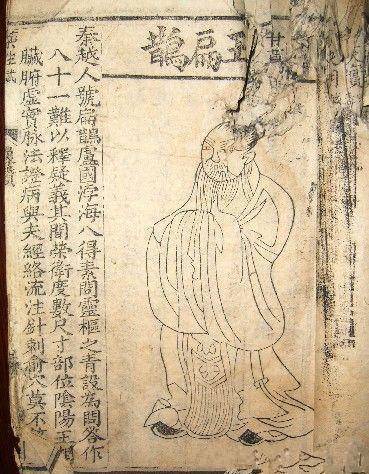 王扁鵲
秦越人號扁鵲盧國浡海人得素問靈樞之旨設為問答作
八十一難以釋疑義其間榮衛度數尺寸部位陰陽王相
臟腑虛實脉法證病與夫經絡流注針刺俞穴莫不